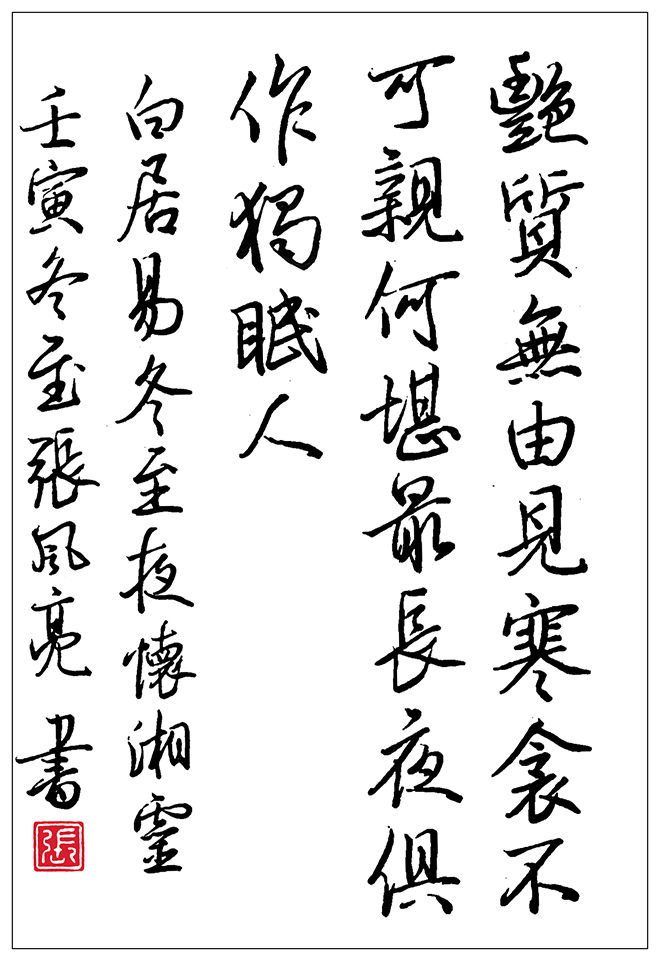 艷質無由見寒衾不
可親何堪最長夜俱
作獨眠人
白居易冬至夜懷湘靈
壬寅冬至張風亮書
張